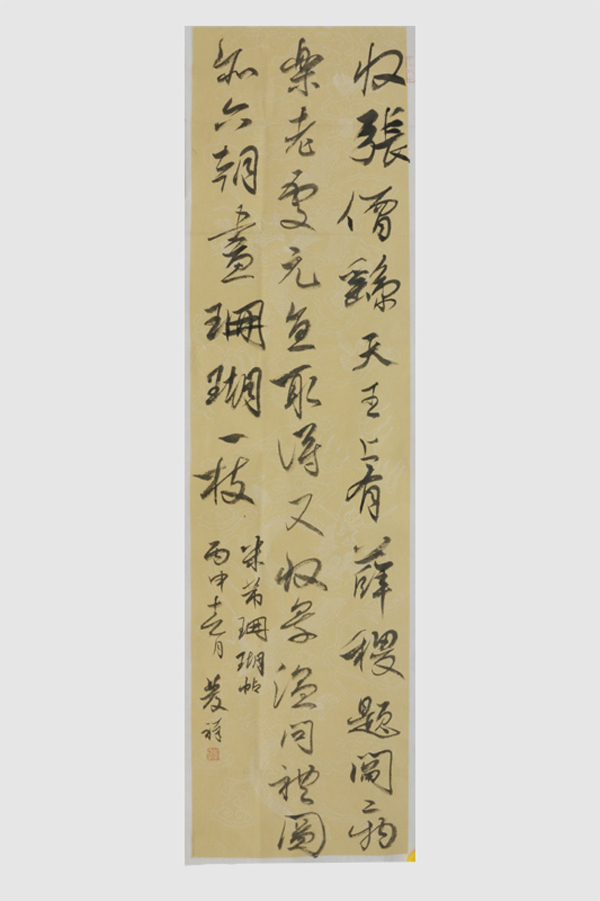 收張僧繇天王上有薛稷題閻二物
樂老處元直取得又收景温問禮圖
亦六朝畫珊瑚一枝
米芾珊瑚帖
丙申吉月